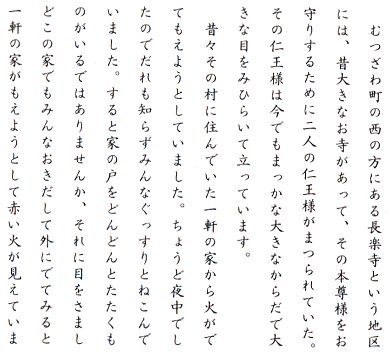 むつざわ町の西の方にある長楽寺という地区
には、昔大きなお寺があって、その本尊様をお
守りするために二人の仁王様がまつられていた。
その仁王様は今でもまっかな大きなからだで大
きな目をみひらいて立っています。
昔々その村に住んでいた一軒の家から火がで
てもえようとしていました。ちょうど夜中でし
たのでだれも知らずみんなぐっすりとねこんで
いました。すると家の戸をどんどんとたたくも
のがいるではありませんか、それに目をさまし
どこの家でもみんなおきだして外にでてみると
一軒の家がもえようとして赤い火が見えていま